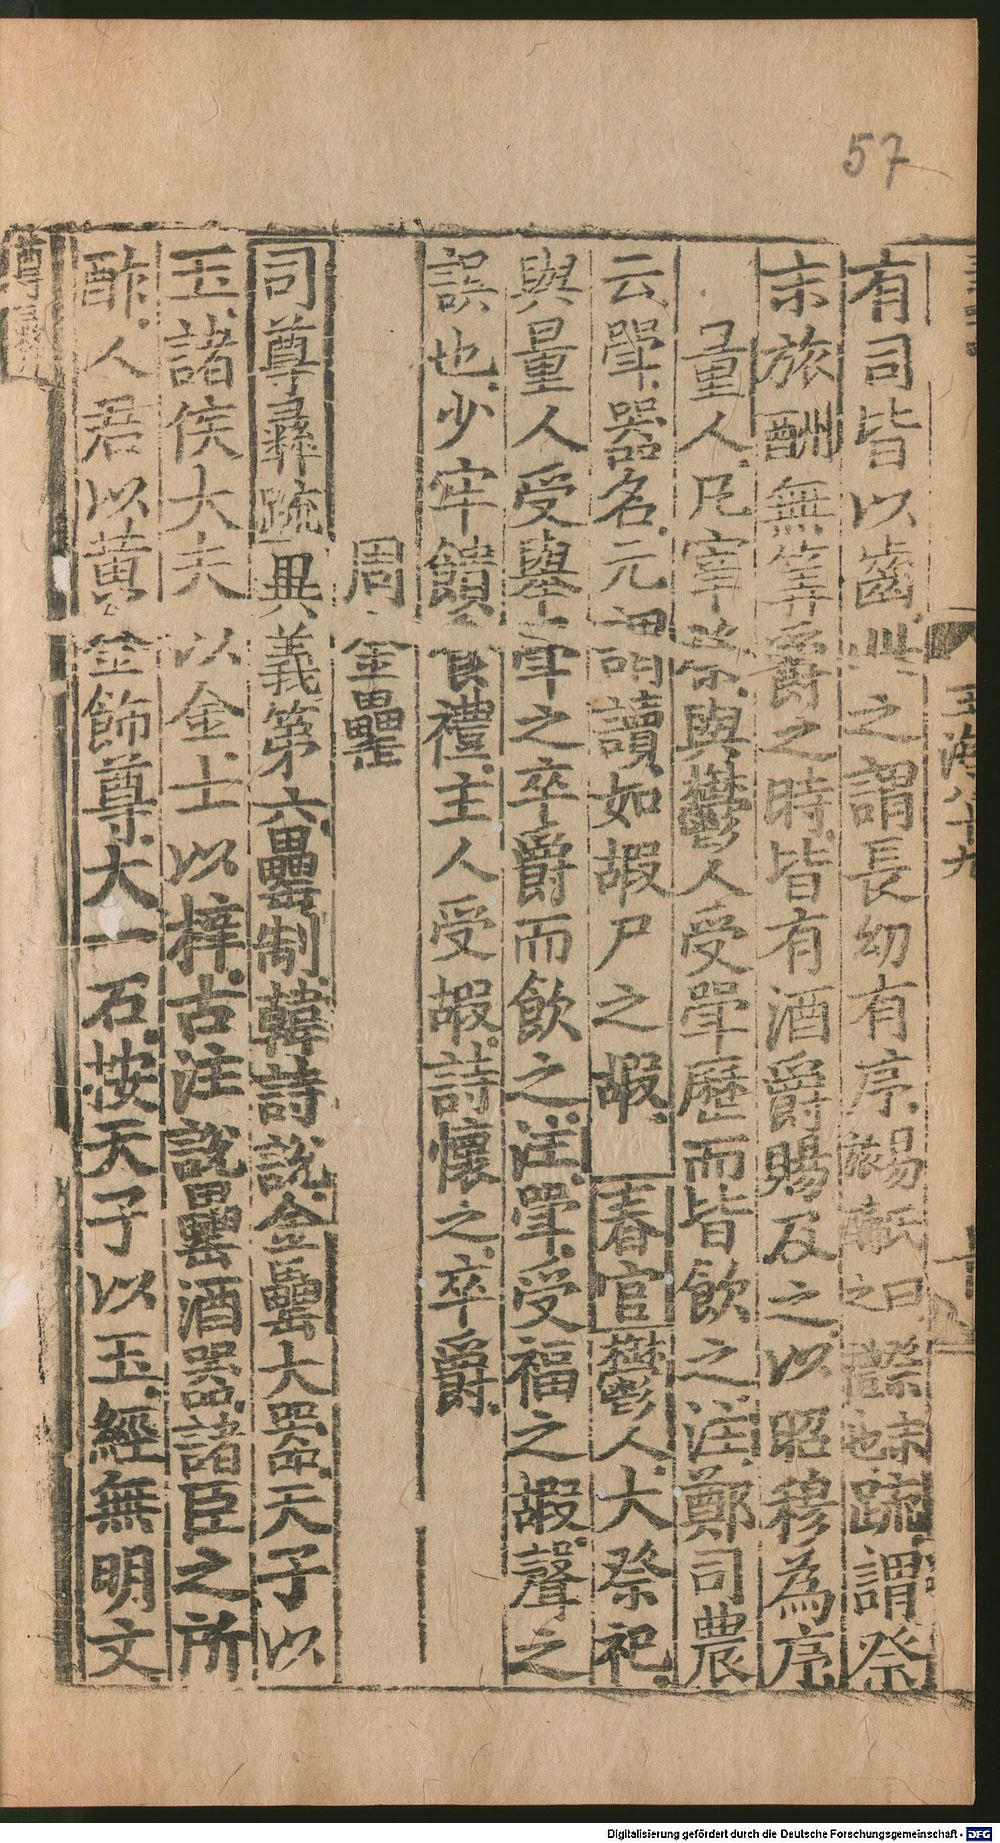 57
有司皆以齒此之謂長幼有序旅酬之曰祭末也疏謂祭
末旅酬無筭爵之時皆有酒爵賜及之以昭穆為序
量人凡宰祭與鬱人受斝歷而皆飲之注鄭司農
云斝器名元謂讀如嘏尸之嘏春官鬱人大祭祀
與量人受舉斝之卒爵而飲之注斝受福之嘏聲之
誤也少牢饋食禮主人受嘏詩懷之卒爵
周金罍
司尊彝疏異義第六罍制韓詩說金罍大器天子以
玉諸侯大夫以金士以梓古注說罍酒器諸臣之所
酢人君以黃金飾尊大一石按天子以玉經無明文
尊彝
玉海八十九
Digitalisierung gefördert durch die Deutsche Forschungsgemeinschaft - DFG